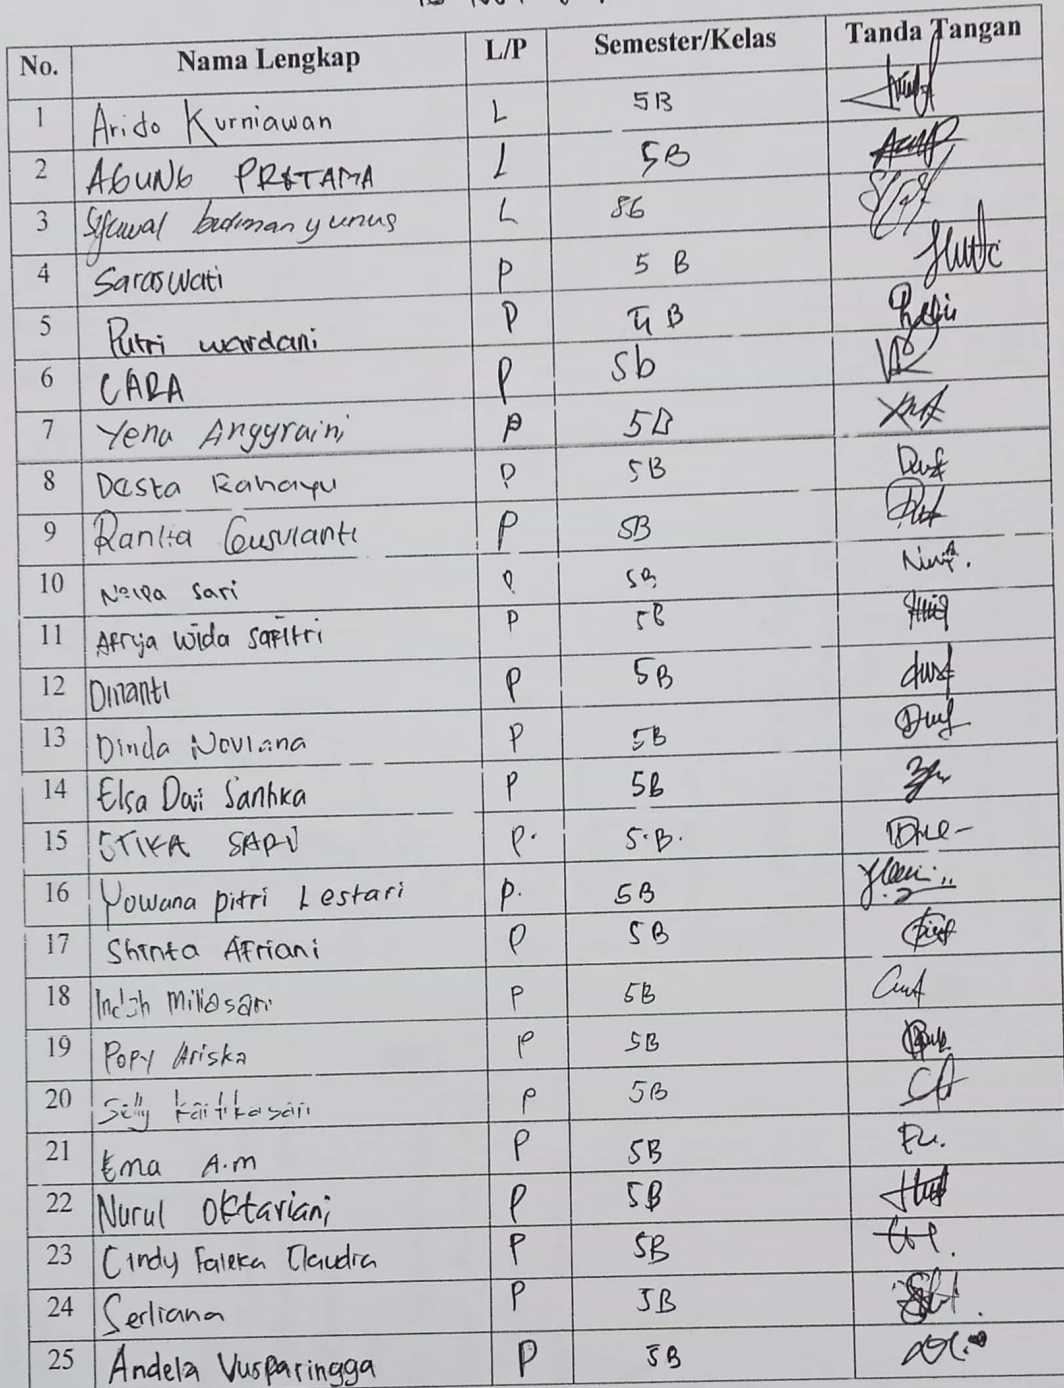 No. Nama Lengkap L/P Semester/Kelas Tanda Tangan
1 Arido Kurniawan L 5B
2 AGUNG PRATAMA L 5B
3 budiman yunus L
4 Saraswati P 5 B
5 Putri wardani P B
6 CARA P 5b
7 Yena Anggraini P 5B
8 Desta Rahayu P 5B
9 Ranita Gusvianti P 5B
10 sari P 5B
11 Afrya Wida Safitri P 5B
12 Dinanti P 5B
13 Dinda Noviana P 5B
14 Elsa Dwi Santika P 5B
15 P. 5.B.
16 Yowana pitri Lestari P. 5B
17 Shinta Afriani P 5B
18 Indah Miliasari P 5B
19 Popy Ariska P 5B
20 Selly Kartikasari P 5B
21 Ema A.m P 5B
22 Nurul Oktariani P 5B
23 Cindy Faleka Claudia P 5B
24 Serliana P 5B
25 Andela Vusparingga P 5B